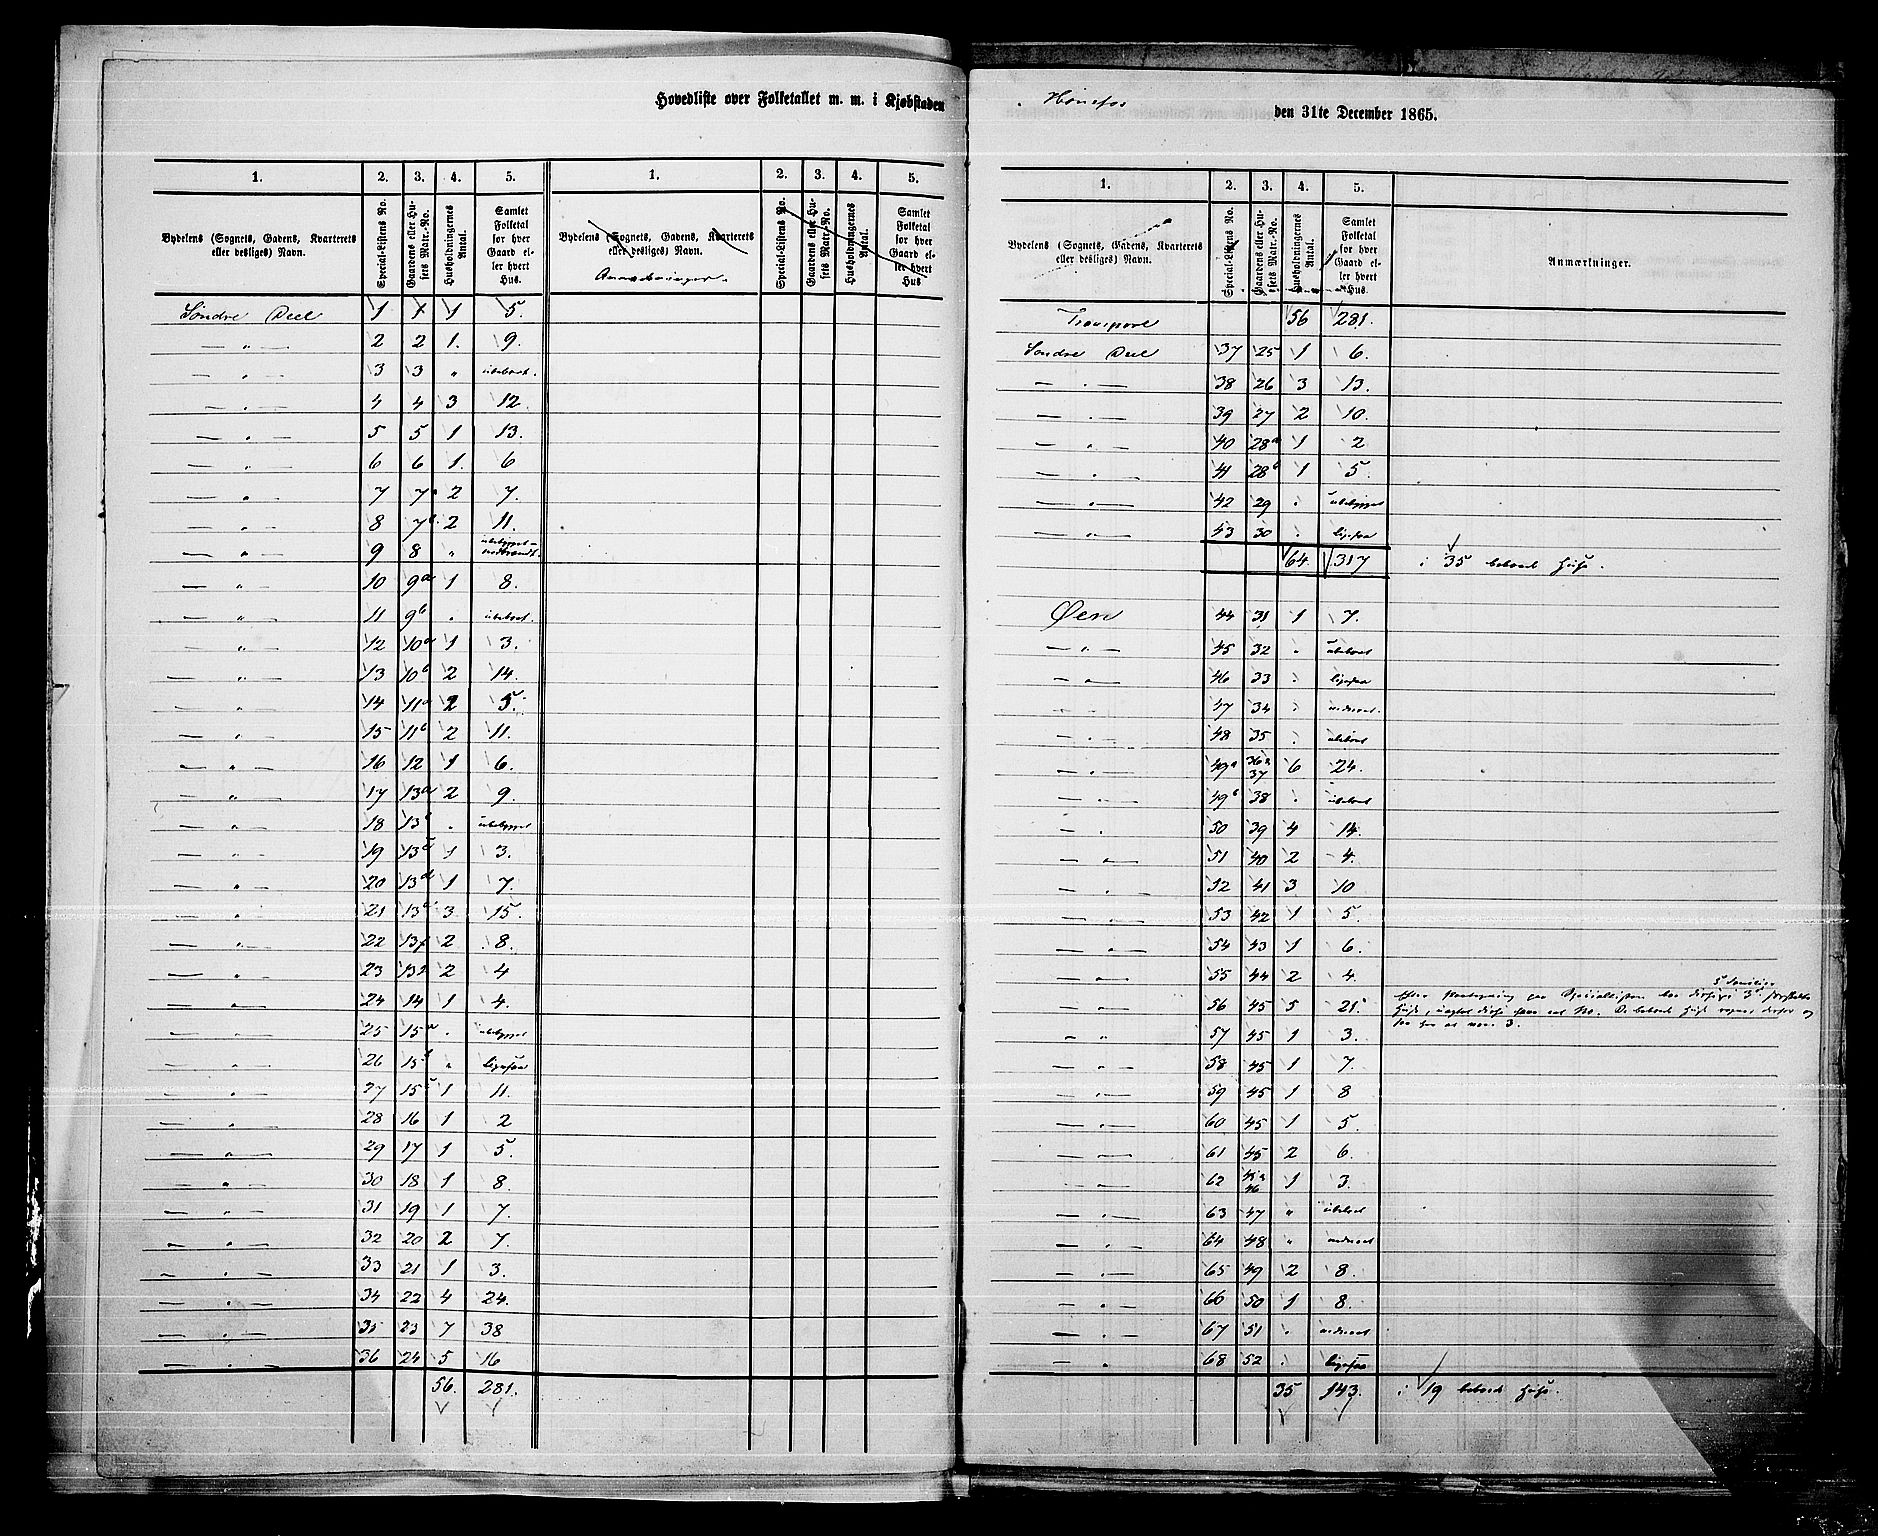 Hovedliste over Folketallet m. m. i Kjøbstaden Hønefos den 31te December 1865.
1. 2. 3. 4. 5. 1. 2. 3. 4. 5.
Bydelens (Sognets, Gadens, Kvarterets eller desliges) Navn. Special-Listens No. Gaardens eller Husets Matr.-No. Husholdningernes Antal. Samlet Folketal for hver Gaard eller hvert Hus. Bydelens (Sognets, Gadens, Kvarterets eller desliges) Navn. Special-Listens No. Gaardens eller Husets Matr.-No. Husholdningernes Antal. Samlet Folketal for hver Gaard eller hvert Hus
Anmærkninger.
Søndre Deel 1 1 1 5.
— " — 2 2 1. 9.
— " — 3 3 " ubeboet.
— " — 4 4 3 12.
— " — 5 5 1 13.
— " — 6 6 1. 6
— " — 7 7a 2 7.
— " — 8 7b 2 11.
— " — 9 8 " ubebygget nedbrændt.
— " — 10 9a 1 8.
— " — 11 9b . ubeboet.
— " — 12 10a 1 3.
— " — 13 10b 2 14.
— " — 14 11a 2 5.
— " — 15 11b 2 11.
— " — 16 12 1 6.
— " — 17 13a 2 9.
— " — 18 13b . ubebygget
— " — 19 13c 1 3.
— " — 20 13d 1 7.
— " — 21 13e 3 15.
— " — 22 13f 2 8.
— " — 23 13g 2 4
— " — 24 14 1 4.
— " — 25 15a . ubebygget
— " — 26 15b " ligesaa
— " — 27 15c 1 11.
— " — 28 16 1 2
— " — 29 17 1 5.
— " — 30 18 1 8.
— " — 31 19 1 7.
— " — 32 20 2 7
— " — 33 21 1 3.
— " — 34 22 4 24.
— " — 35 23 7 38
— " — 36 24 5 16
56. 281.
1. 2. 3. 4. 5.
Bydelens (Sognets, Gadens, Kvarterets eller desliges) Navn. Special-Listens No. Gaardens eller Husets Matr.-No. Husholdningernes Antal. Samlet Folketal for hver Gaard eller hvert Hus. Anmærkninger.
Transport 56 281.
Søndre Deel 37 25 1 6.
— " — 38 26 3 13.
— " — 39 27 2 10.
— " — 40 28a 1 2
— " — 41 28b 1 5.
— " — 42 29 . ubebygget
— " — 43 30 . ligesaa
64. 317 i 35 beboede Huse.
Øen 44 31 1 7.
— " — 45 32 . ubeboet
— " — 46 33 . ligesaa
— " — 47 34 .
— " — 48 35 . ubeboet
— " — 49a 36 & 37 6 24.
— " — 49b 38 . ubeboet
— " — 50 39 4 14.
— " — 51 40 2 4.
— " — 52 41 3 10
— " — 53 42 1 5.
— " — 54 43 1 6.
— " — 55 44 2 4.
5 Familier
— " — 56 45 5 21. Efter paa Speciallisten boe disse i 3
Huse, uagtet disse have eet No. De beboede Huse regnes derfor og
— " — 57 45 1 3. 3.
— " — 58 45 1 7.
— " — 59 45 1 8
— " — 60 45 1 5.
— " — 61 45 2 6.
— " — 62 45 & 46 1 3.
— " — 63 47 " ubeboet
— " — 64 48 "
— " — 65 49 2 8.
— " — 66 50 1 8.
— " — 67 51 .
— " — 68 52 . ligesaa
35 143. i 19 beboede Huse.